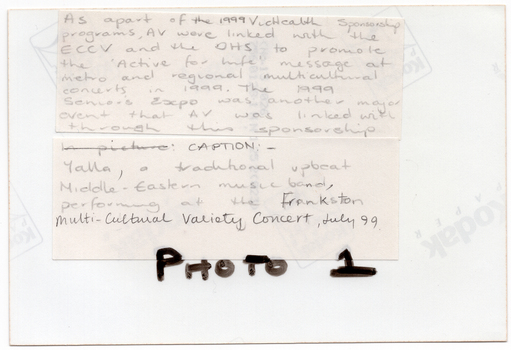 As apart of the 1999 VicHealth Sponsorship
programs, AV were linked with the
ECCV and the DHS to promote
the 'Active for life' message at
metro and regional multicultural
concerts in 1999. The 1999
Seniors Expo was another major
event that AV was linked with
through this sponsorship
In picture: CAPTION:-
Yalla, a traditional upbeat
Middle-Eastern music band,
performing at the Frankston
Multi-Cultural Variety Concert, July 99.
PHOTO 1
Kodak